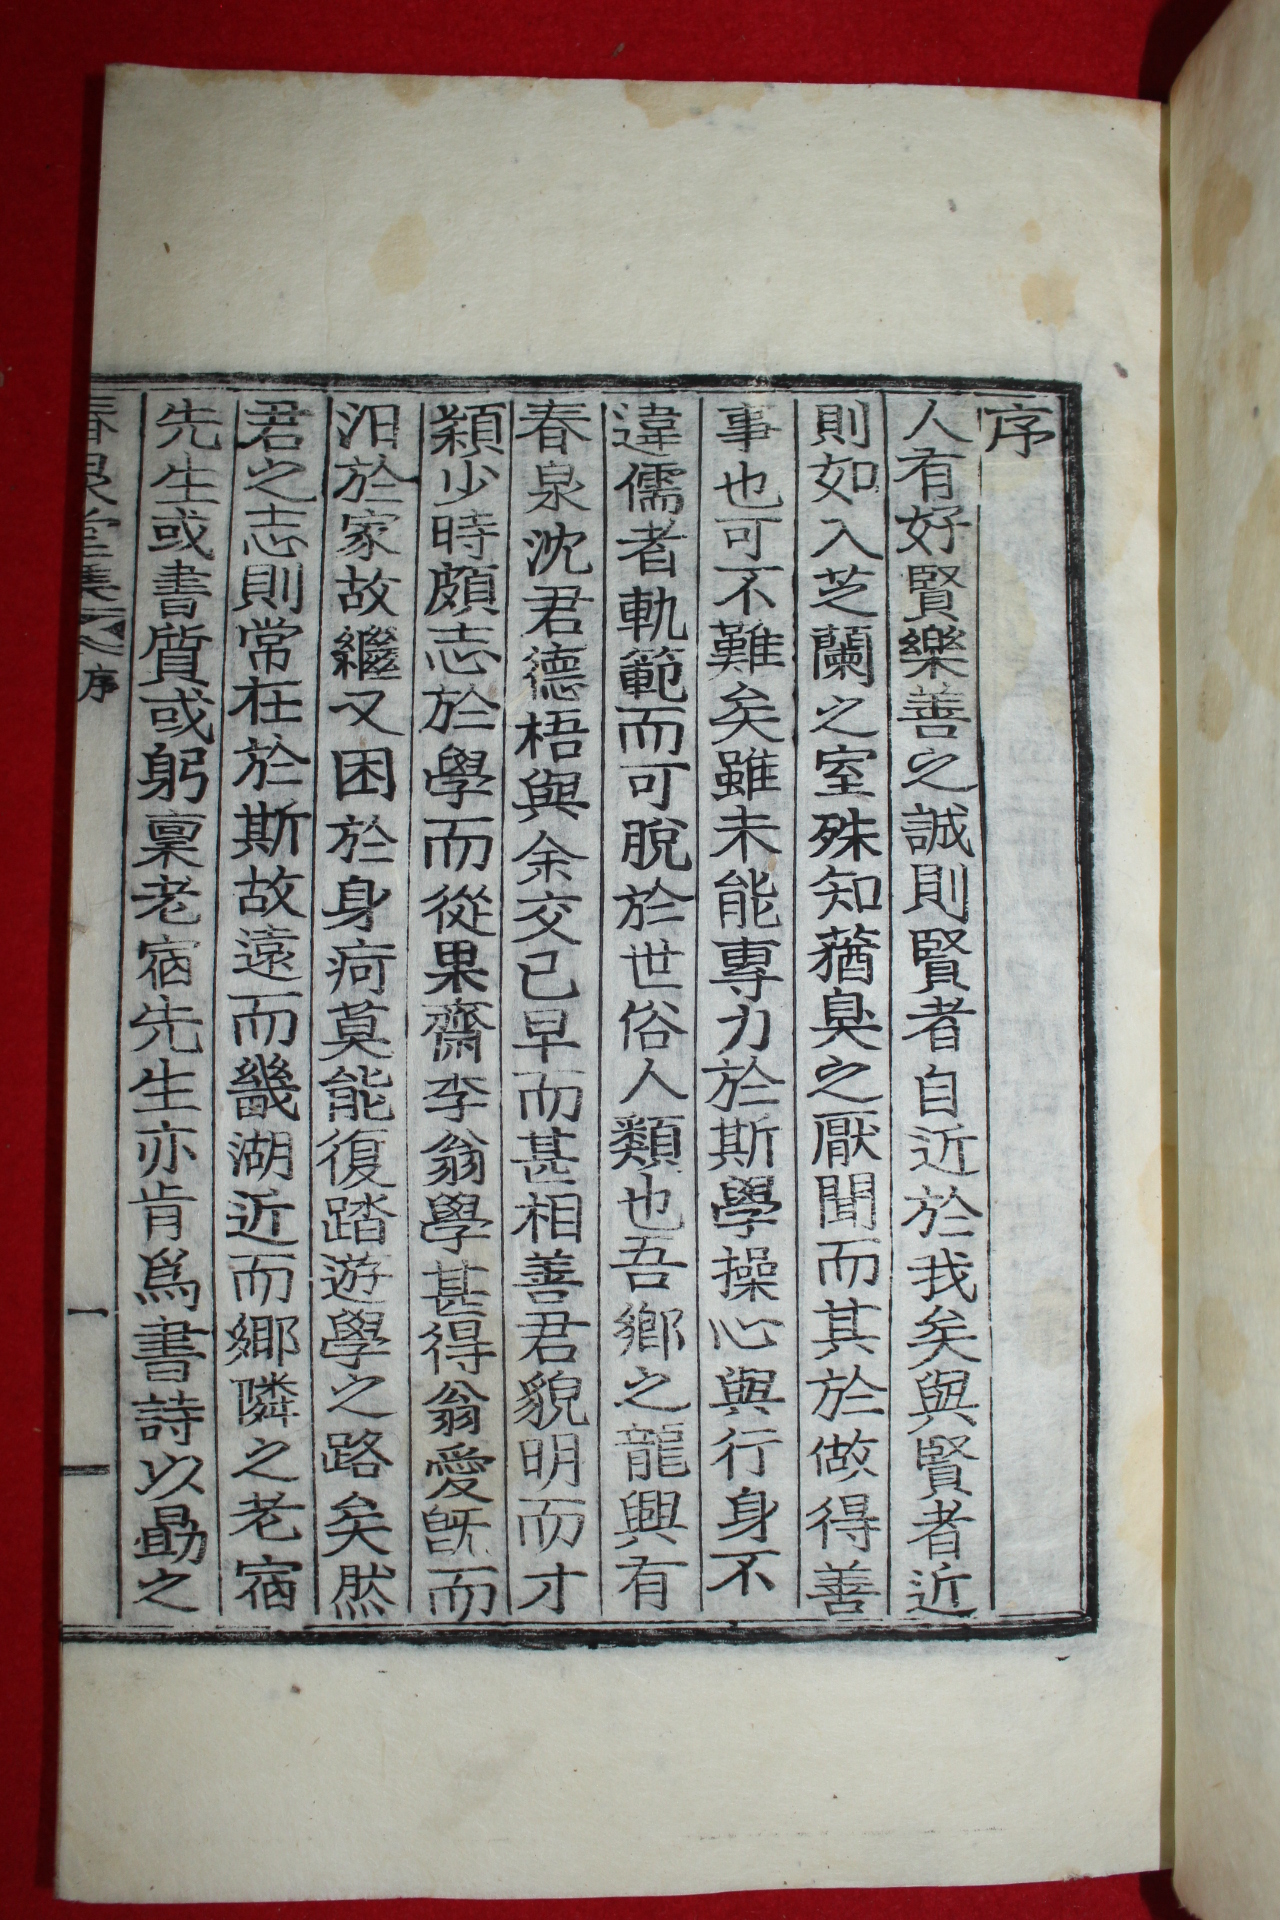 序
人有好賢樂善之誠則賢者自近於我矣與賢者近
則如入芝蘭之室殊知蕕臭之厭聞而其於做得善
事也可不難矣雖未能專力於斯學操心與行身不
違儒者軌範而可脫於世俗人類也吾鄉之龍興有
春泉沈君德梧與余交已早而甚相善君貌明而才
穎少時頗志於學而從果齋李翁學甚得翁愛旣而
汨於家故繼又困於身疴莫能復踏遊學之路矣然
君之志則常在於斯故遠而畿湖近而鄉隣之老宿
先生或書質或躬稟老宿先生亦肯爲書詩以勗之
春泉堂集 序
一